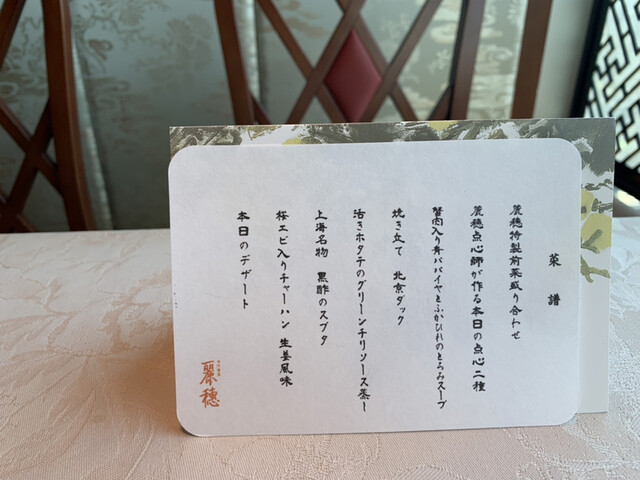 菜譜
麗穂特製前菜盛り合わせ
麗穂点心師が作る本日の点心二種
蟹肉入り青パパイヤとふかひれのとろみスープ
焼き立て 北京ダック
活きホタテのグリーンチリソース蒸し
上海名物 黒酢のスブタ
桜エビ入りチャーハン 生姜風味
本日のデザート
麗穂